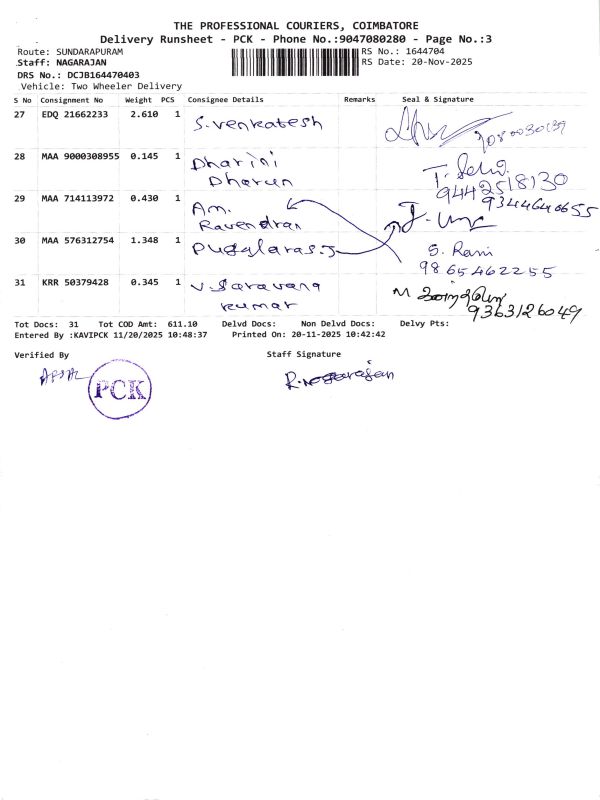 THE PROFESSIONAL COURIERS, COIMBATORE
Delivery Runsheet - PCK - Phone No.:9047080280 - Page No.:3
Route: SUNDARAPURAM RS No.: 1644704
Staff: NAGARAJAN RS Date: 20-Nov-2025
DRS No.: DCJB164470403
Vehicle: Two Wheeler Delivery
S No Consignment No Weight PCS Consignee Details Remarks Seal & Signature
27 EDQ 21662233 2.610 1 S.Venkatesh
28 MAA 9000308955 0.145 1 Dharini
Dharun
9442518130
29 MAA 714113972 0.430 1 Am.
Ravendran
9344640655
30 MAA 576312754 1.348 1 Pugalaras.J
S. Rani
9865462255
31 KRR 50379428 0.345 1 V.Saravana
kumar
9363126049
Tot Docs: 31 Tot COD Amt: 611.10 Delvd Docs: Non Delvd Docs: Delvy Pts:
Entered By :KAVIPCK 11/20/2025 10:48:37 Printed On: 20-11-2025 10:42:42
Verified By Staff Signature
PCK
R.nagarajan